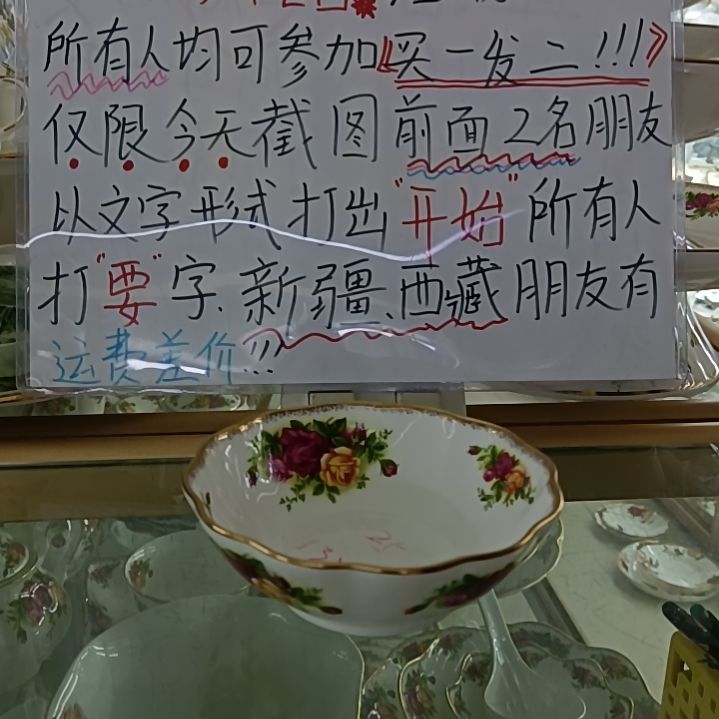 所有人均可参加《买一发二!!!》
仅限今天截图前面2名朋友
以文字形式打出"开始"所有人
打"要"字、新疆、西藏朋友有
运费差价!!!